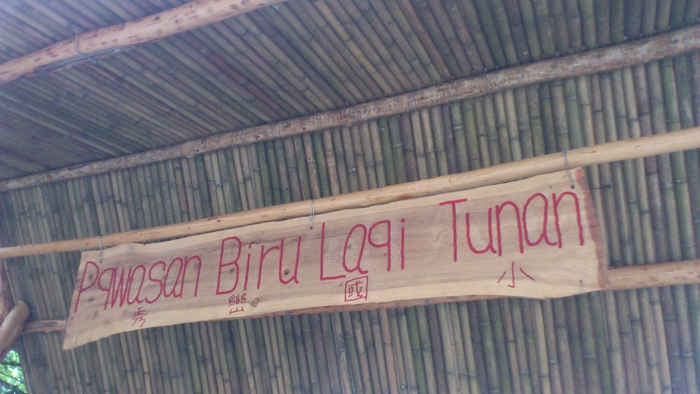 Pqwasan Biru Laqi Tunan
秀巒國小